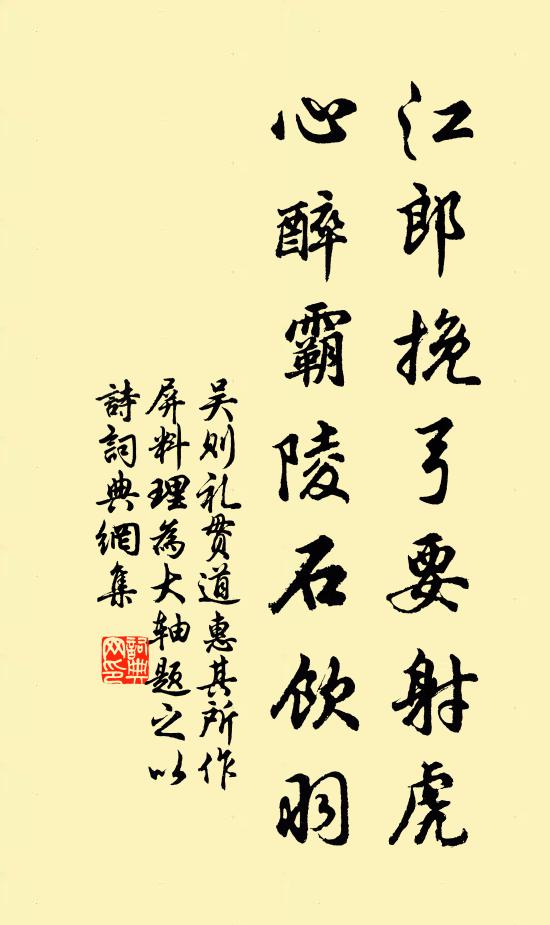 江郎挽弓要射虎
心醉霸陵石飲羽
吴则礼贯道惠其所作
屏料理為大轴题之以
詩詞典網集
詞典
网印